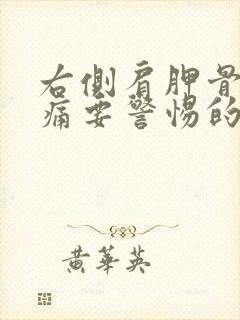 右側肩胛骨
痛要警惕的
黃華英